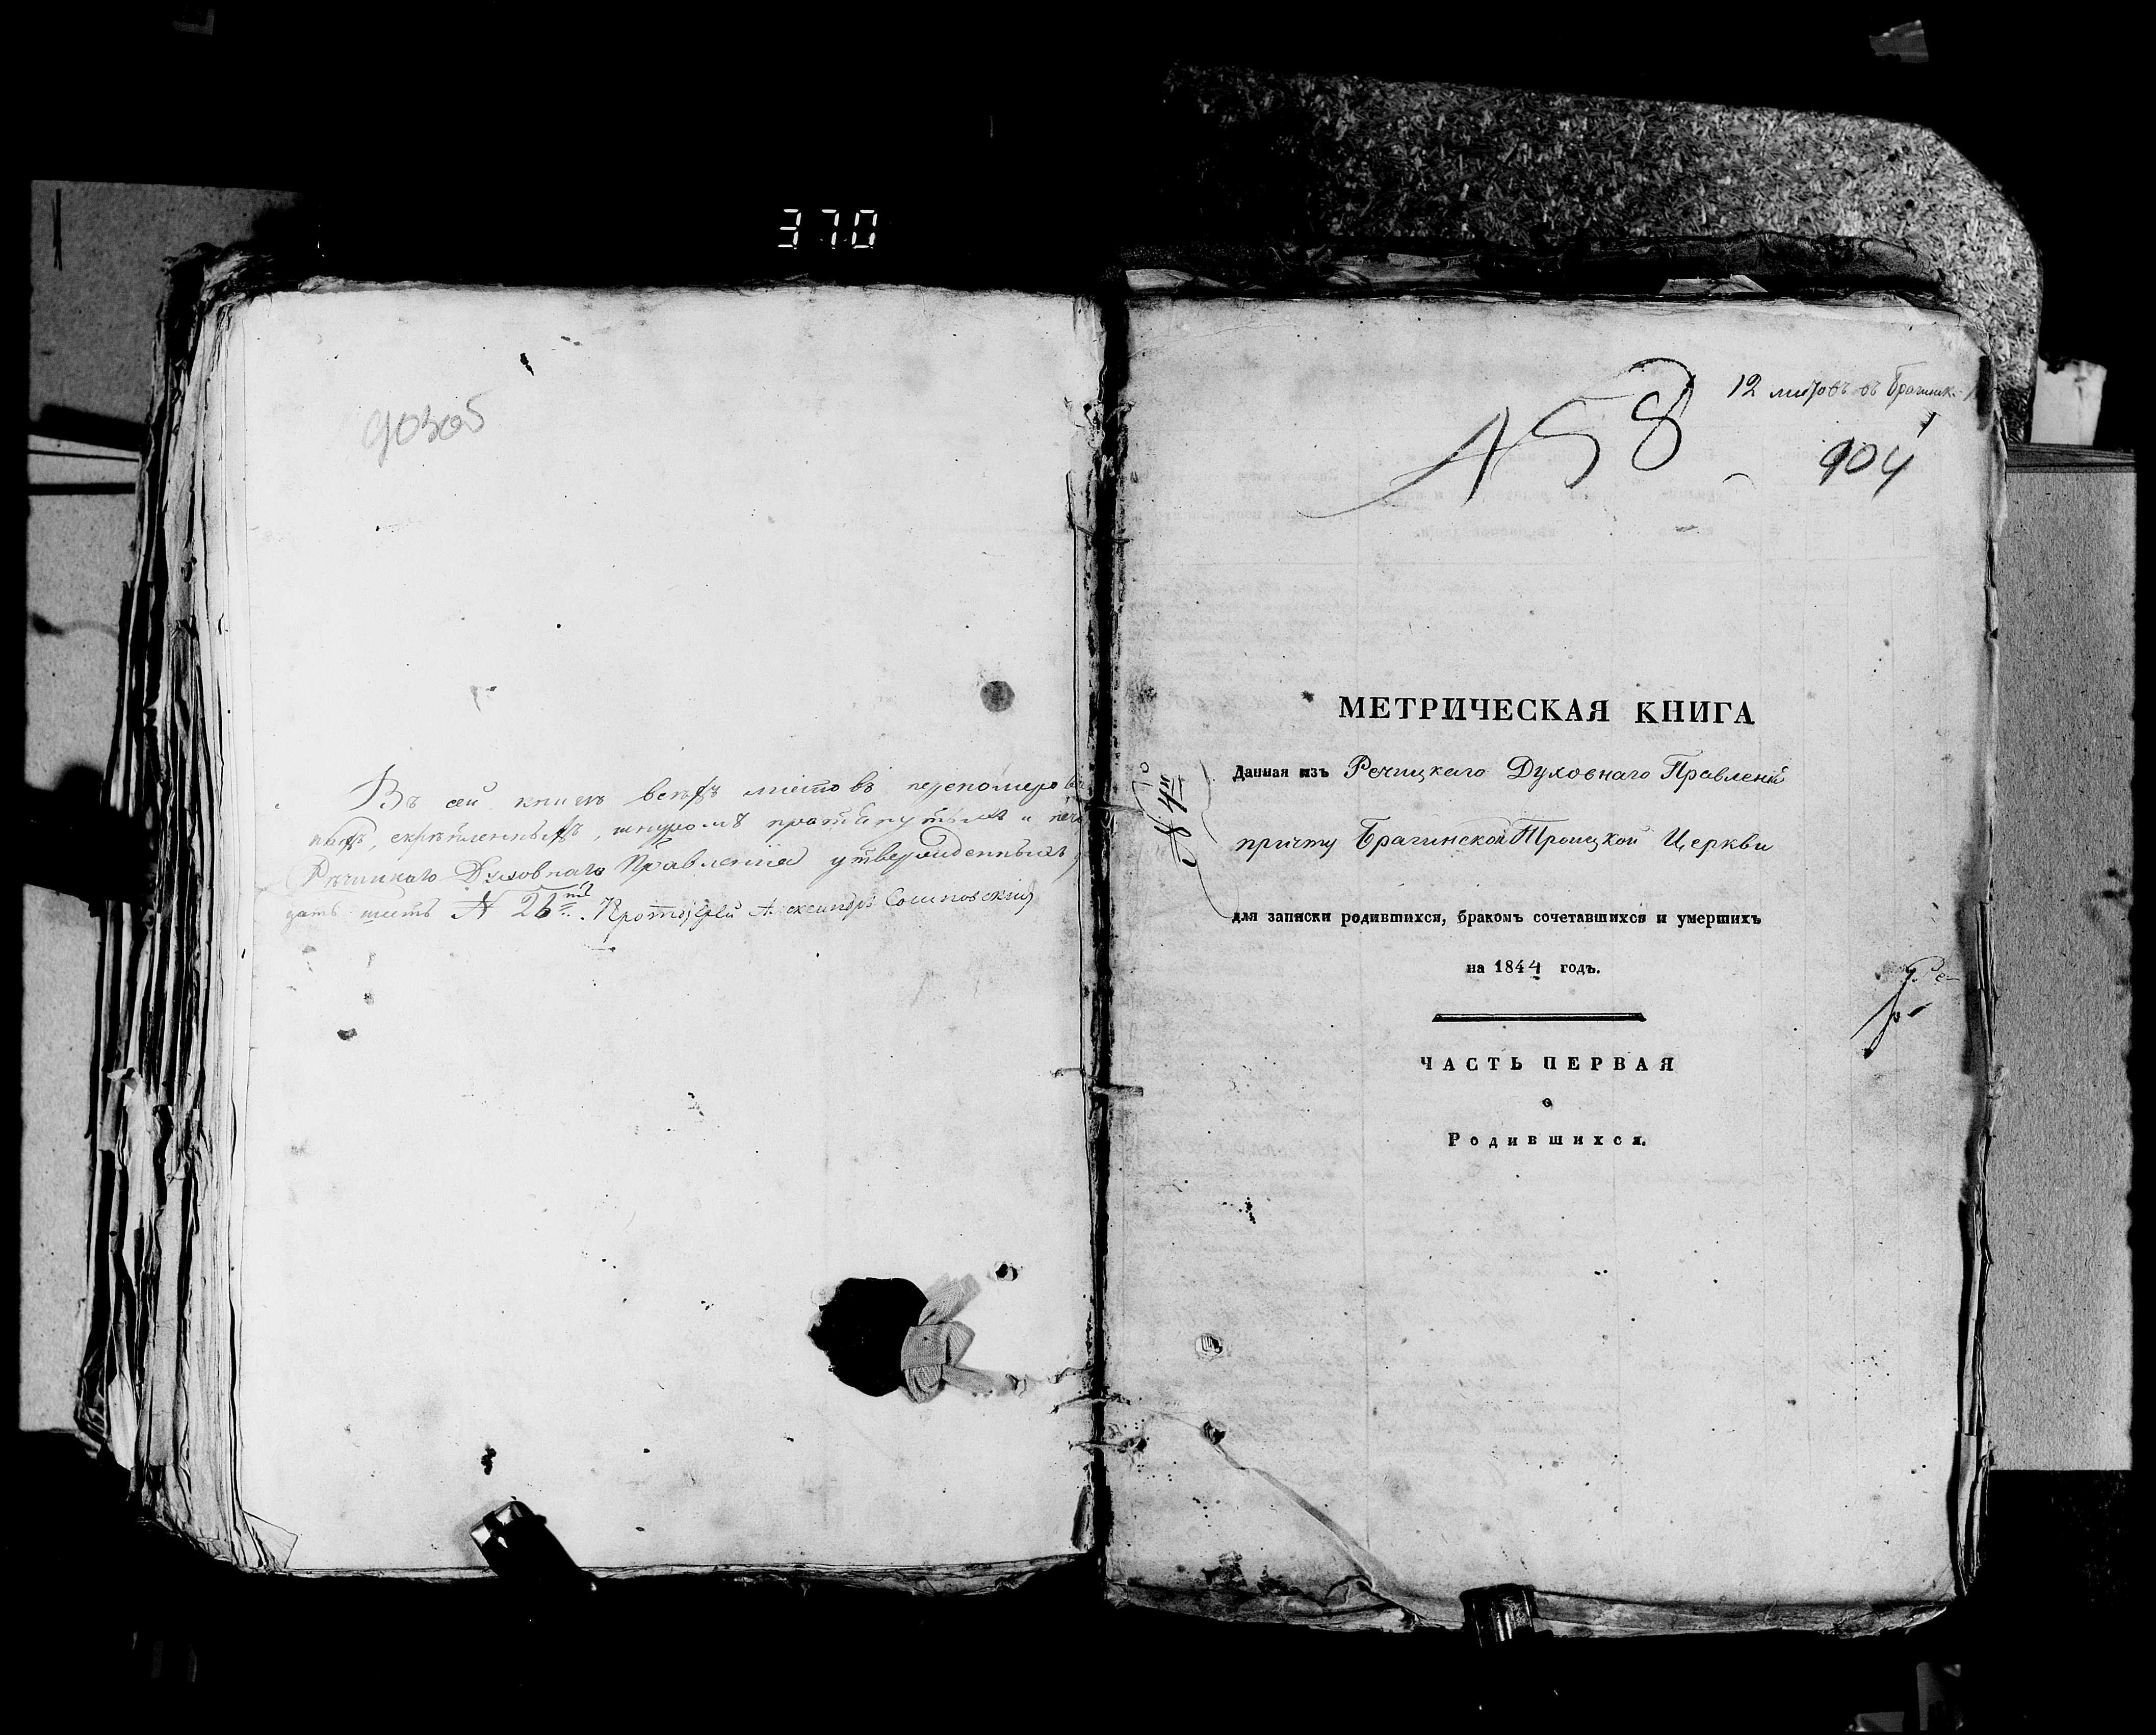 370
903об
Въ сей книгѣ всѣхъ листовъ перенумеро
ныхъ, скрѣпленныхъ, шнуромъ
Рѣчицкаго Духовнаго Правленія утвержденныхъ
цать шесть № 26. Протоіерей Александръ
12 листовъ
458
904
МЕТРИЧЕСКАЯ КНИГА
Данная изъ Речицкаго Духовнаго Правленія
причту Брагинской Троицкой Церкви
для записки родившихся, бракомъ сочетавшихся и умершихъ
на 1844 годъ.
ЧАСТЬ ПЕРВАЯ
о
Родившихся.